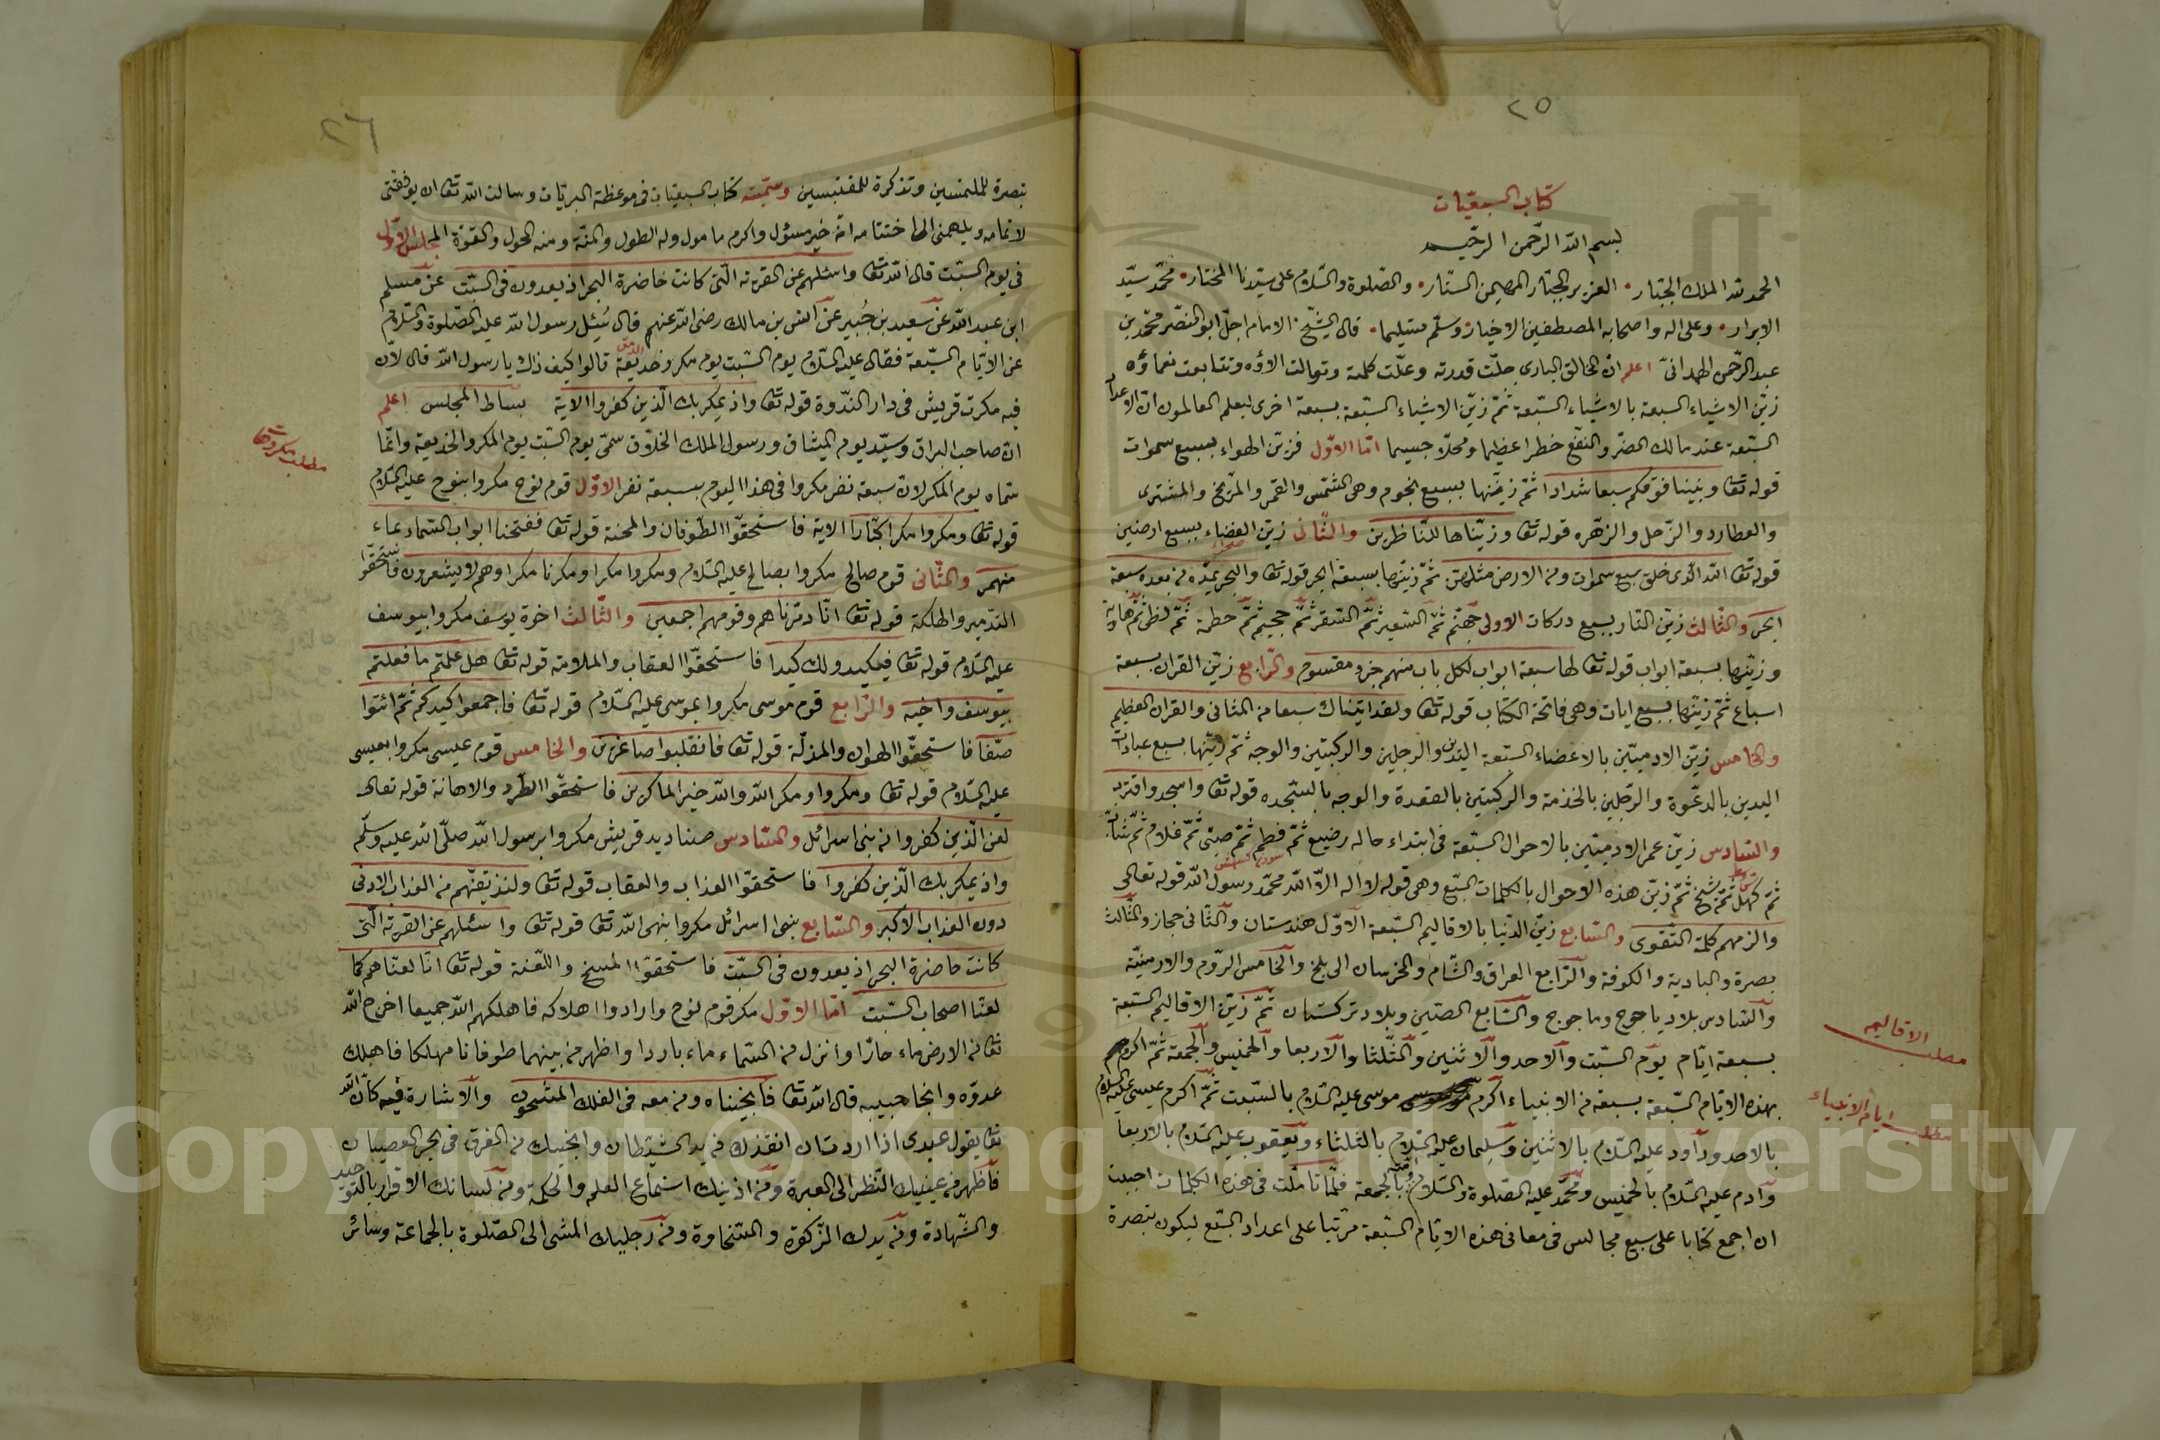 ٢٥
كتاب السبعيّات
بسم الله الرّحمن الرّحيم
الحمد لله الملك الجبّار العزيز الجبّار المهيمن السّتار والصّلوة والسّلام على سيّدنا المختار محمّد سيّد
الابرار وعلى اله واصحابه المصطفين الاخيار وسلّم تسليما قال الشّيخ الامام اجلّ ابو النّصر محمّد بن
عبد الرّحمن الهمدانىّ اعلم انّ الخالق البارى جلّت قدرته وعلّت كلمته وتوالت الاؤه وتتابعت نعماؤه
زيّن الاشياء السبعة بالاشياء السّبعة ثمّ زيّن الاشياء السّبعة بسبعة اخرى ليعلم العالمون انّ الاعداد
السّبعة عند مالك الضرّ والنّفع خطرا عظيما ومحلّا جسيما امّا الاوّل فزيّن الهواء بسبع سموات
قوله تعا وبنينا فوقكم سبعا شدادا ثمّ زيّنها بسبع نجوم وهى الشّمس والقمر والمرّيخ والمشترى
والعطارد والزّحل والزهره قوله تعا وزيّنّاها للنّاظرين والثّانى زيّن الفضاء بسبع ارضين
قوله تعا الله الّذى خلق سبع سموات ومن الارض مثلهنّ ثمّ زيّنها بسبعة ابحر قوله تعا والبحر يمدّه من بعده سبعة
ابحر والثّالث زيّن النّار بسبع دركات الاولى جهنّم ثمّ السّعير ثمّ السّقر ثمّ جحيم ثمّ حطمة ثمّ لظى ثمّ هاوية
وزيّنها بسبعة ابواب قوله تعا لها سبعة ابواب لكل باب منهم جزء مقسوم والرّابع زيّن القران بسبعة
اسباع ثمّ زيّنها بسبع ايات وهى فاتحة الكتاب قوله تعا ولقد اتيناك سبعا من المثانى والقران العظيم
والخامس زيّن الادميّين بالاعضاء السّبعة اليدين والرجلين والركبتين والوجه ثمّ زيّنها بسبع عبادات
اليدين بالدعّوة والرّجلين بالخذمة والركبتين بالقعدة والوجه بالسّجده قوله تعا واسجد واقترب
والسّادس زيّن عمر الادميّين بالاحوال السّبعة فى ابتداء حاله رضيع ثمّ فطم ثمّ صبىّ ثمّ غلام ثمّ شابّ
ثمّ كهل ثمّ شيخ ثمّ زيّن هذه الاحوال بالكلمات السّبع وهى قوله لا اله الّا الله محمّد رسول الله قوله تعالى
والزمهم كلمة التّقوى والسّابع زيّن الدّنيا بالاقاليم السّبعة الاوّل هندستان والثّانى حجاز والثّالث
بصرة والبادية والكوفة والرّابع العراق والشّام والخرسان الى بلخ والخامس الرّوم والارمنيّة
والسّادس بلاد ياجوج وماجوج والسّابع الصّين وبلاد تركستان ثمّ زيّن الاقاليم السّبعة
بسبعة ايّام يوم السّبت والاحد والاثنين والثّلثا والاربعا والخميس والجمعة ثمّ اكرم
بهذه الايّام السّبعة بسبعة من الانبياء اكرم موسى عليه السّلام بالسّبت ثمّ اكرم عيسى عليه السّلام
بالاحد وداود عليه السّلام بالاثنين وسليمان عليه السّلام بالثلثاء ويعقوب عليه السّلام بالاربعا
وادم عليه السّلام بالخميس ومحمّد عليه الصّلوة والسّلام وامّته بالجمعة فلمّا تاملّت فى هذه الكلمات احببت
ان اجمع كتابا على سبع مجالس فى معانى هذه الايّام السّبعة مرتّبا على اعداد السّبع ليكون تبصرة
مطلب الاقاليم
مطلب ايام الانبياء
٢٦
تبصرة للملتمسين وتذكرة للمقتبسين وسمّيته كتاب السبعيّات فى موعظة البريّات وسالت الله تعا ان يوفقنى
لاتمامه ويلهمنى الى اختتامه انّه خير مسئول واكرم مامول وله الطول والمنّة ومنه الحول والقوّة المجلس الاوّل
فى يوم السّبت قال الله تعا واسئلهم عن القرية الّتى كانت حاضرة البحر اذ يعدون فى السّبت عن مسلم
ابن عبد الله عن سعيد بن جبير عن انس بن مالك رضى الله عنهم قال سُئل رسول الله عليه الصّلوة والسّلام
عن الايّام السّبعة فقال عليه السّلام يوم السّبت يوم مكر وخديعة قالوا كيف ذاك يا رسول الله قال لانّ
فيه مكرت قريش فى دار النّدوة قوله تعا واذ يمكر بك الّذين كفروا الاية بساط المجلس اعلم
انّ صاحب البراق وسيّد يوم الميثاق ورسول الملك الخلّاق سمّى يوم السّبت يوم المكر والخديعة وانّما
سمّاه يوم المكر لانّ سبعة نفر مكروا فى هذا اليوم بسبعة نفر الاوّل قوم نوح مكروا بنوح عليه السّلام
قوله تعا ومكروا مكرا كبّارا الاية فاستحقّوا الطّوفان والمحنة قوله تعا ففتحنا ابواب السّماء بماء
منهمر والثّانى قوم صالح مكروا بصالح عليه السّلام ومكروا مكرا ومكرنا مكرا وهم لا يشعرون فاستحقّوا
التدّمير والهلكة قوله تعا انّا دمّرناهم وقومهم اجمعين والثّالث اخوة يوسف مكروا بيوسف
عليه السّلام قوله تعا فيكيدوا لك كيدا فاستحقّوا العقاب والملامة قوله تعا هل علمتم ما فعلتم
بيوسف واخيه والرّابع قوم موسى مكروا بموسى عليه السّلام قوله تعا فاجمعوا كيدكم ثمّ ائتوا
صفّا فاستحقّوا الهوان والمذلّة قوله تعا فانقلبوا صاغرين والخامس قوم عيسى مكروا بعيسى
عليه السّلام قوله تعا ومكروا ومكر الله والله خير الماكرين فاستحقّوا الطّرد والاهانة قوله تعالى
لعن الّذين كفروا من بنى اسرائل والسّادس صناديد قريش مكروا برسول الله صلّى الله عليه وسلّم
واذ يمكر بك الّذين كفروا فاستحقّوا العذاب والعقاب قوله تعا ولنذيقنّهم من العذاب الادنى
دون العذاب الاكبر والسّابع بنى اسرائل مكروا بنهى الله تعا قوله تعا واسئلهم عن القرية الّتى
كانت حاضرة البحر اذ يعدون فى السّبت فاستحقوا المسخ واللّعنة قوله تعا انّا لعنّاهم كما
لعنّا اصحاب السّبت امّا الاوّل مكر قوم نوح وارادوا اهلاكه فاهلكهم الله جميعا اخرج الله
تعا من الارض ماء حارّا وانزل من السّماء ماء باردا واظهر من بينهما طوفانا مهلكا فاهلك
عدوّه وانجا حبيبه قال الله تعا فانجيناه ومن معه فى الفلك المشحون والاشارة فيه كانّ الله
تعا يقول عبدى اذا اردت ان انقذك من يد الشّيطان وانجيك من الغرق فى بحر العصيان
فاظهر من عينيك النّظر الى العبرة ومن اذنيك استماع العلم والحكمة ومن لسانك الاقرار بالتوحيد
والشّهادة ومن يدك الزّكوة والسّخاوة ومن رجليك المشى الى الصّلوة بالجماعة وسائر
مطلب مكروها
Copyright © King Saud University